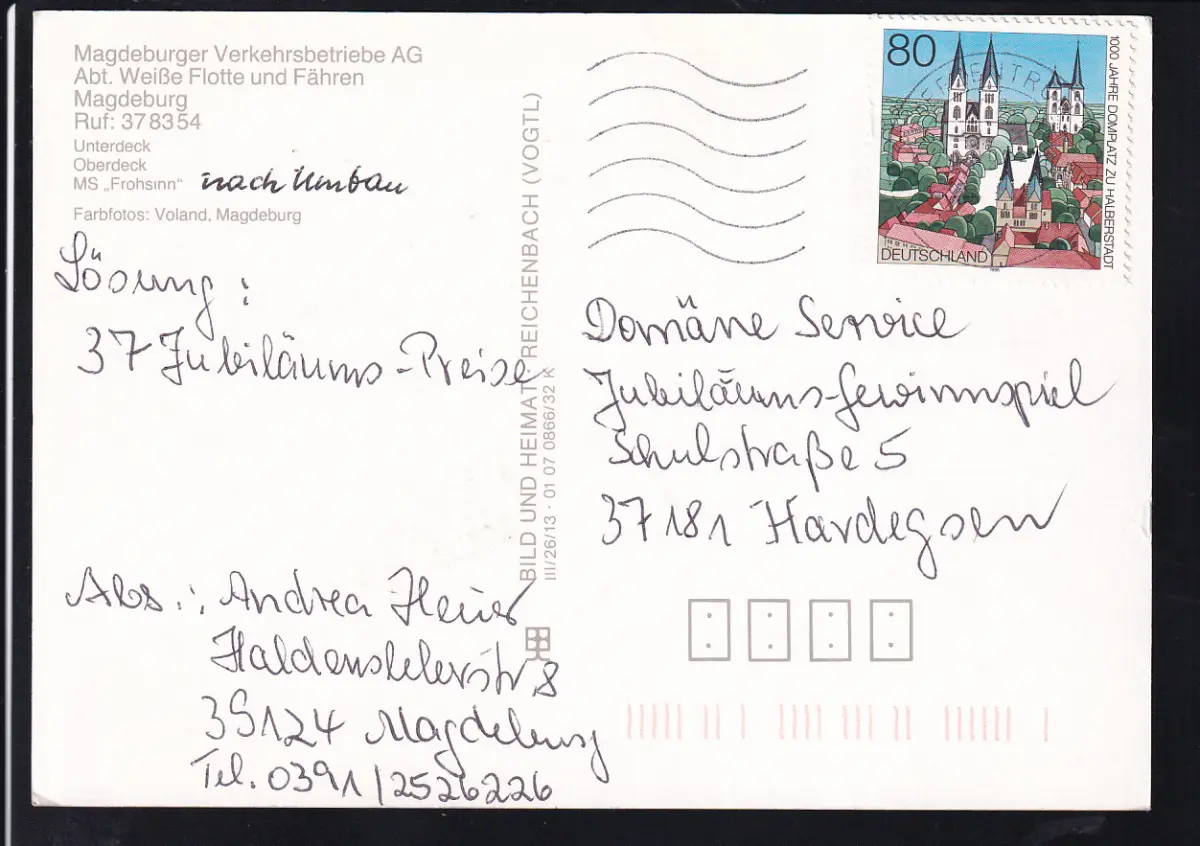 Magdeburger Verkehrsbetriebe AG
Abt. Weiße Flotte und Fähren
Magdeburg
Ruf: 37 83 54
Unterdeck
Oberdeck
MS „Frohsinn“ nach Umbau
Farbfotos: Voland, Magdeburg
Lösung:
37 Jubiläums-Preise
Abs.: Andrea Heuer
Haldenslelerstr. 8
39124 Magdeburg
Tel. 0391/2526226
BILD UND HEIMAT REICHENBACH (VOGTL)
III/26/13 · 01 07 0866/32 K
80
1000 JAHRE DOMPLATZ ZU HALBERSTADT
DEUTSCHLAND
1996
Domäne Service
Jubiläums-Gewinnspiel
Schulstraße 5
37181 Hardegsen